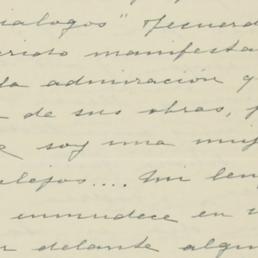 ialogos" recuerdo
erido manifesta
la admiración y
de sus obras, p
soy una muj
lejos.... Mi len
enmudece en
delante algun